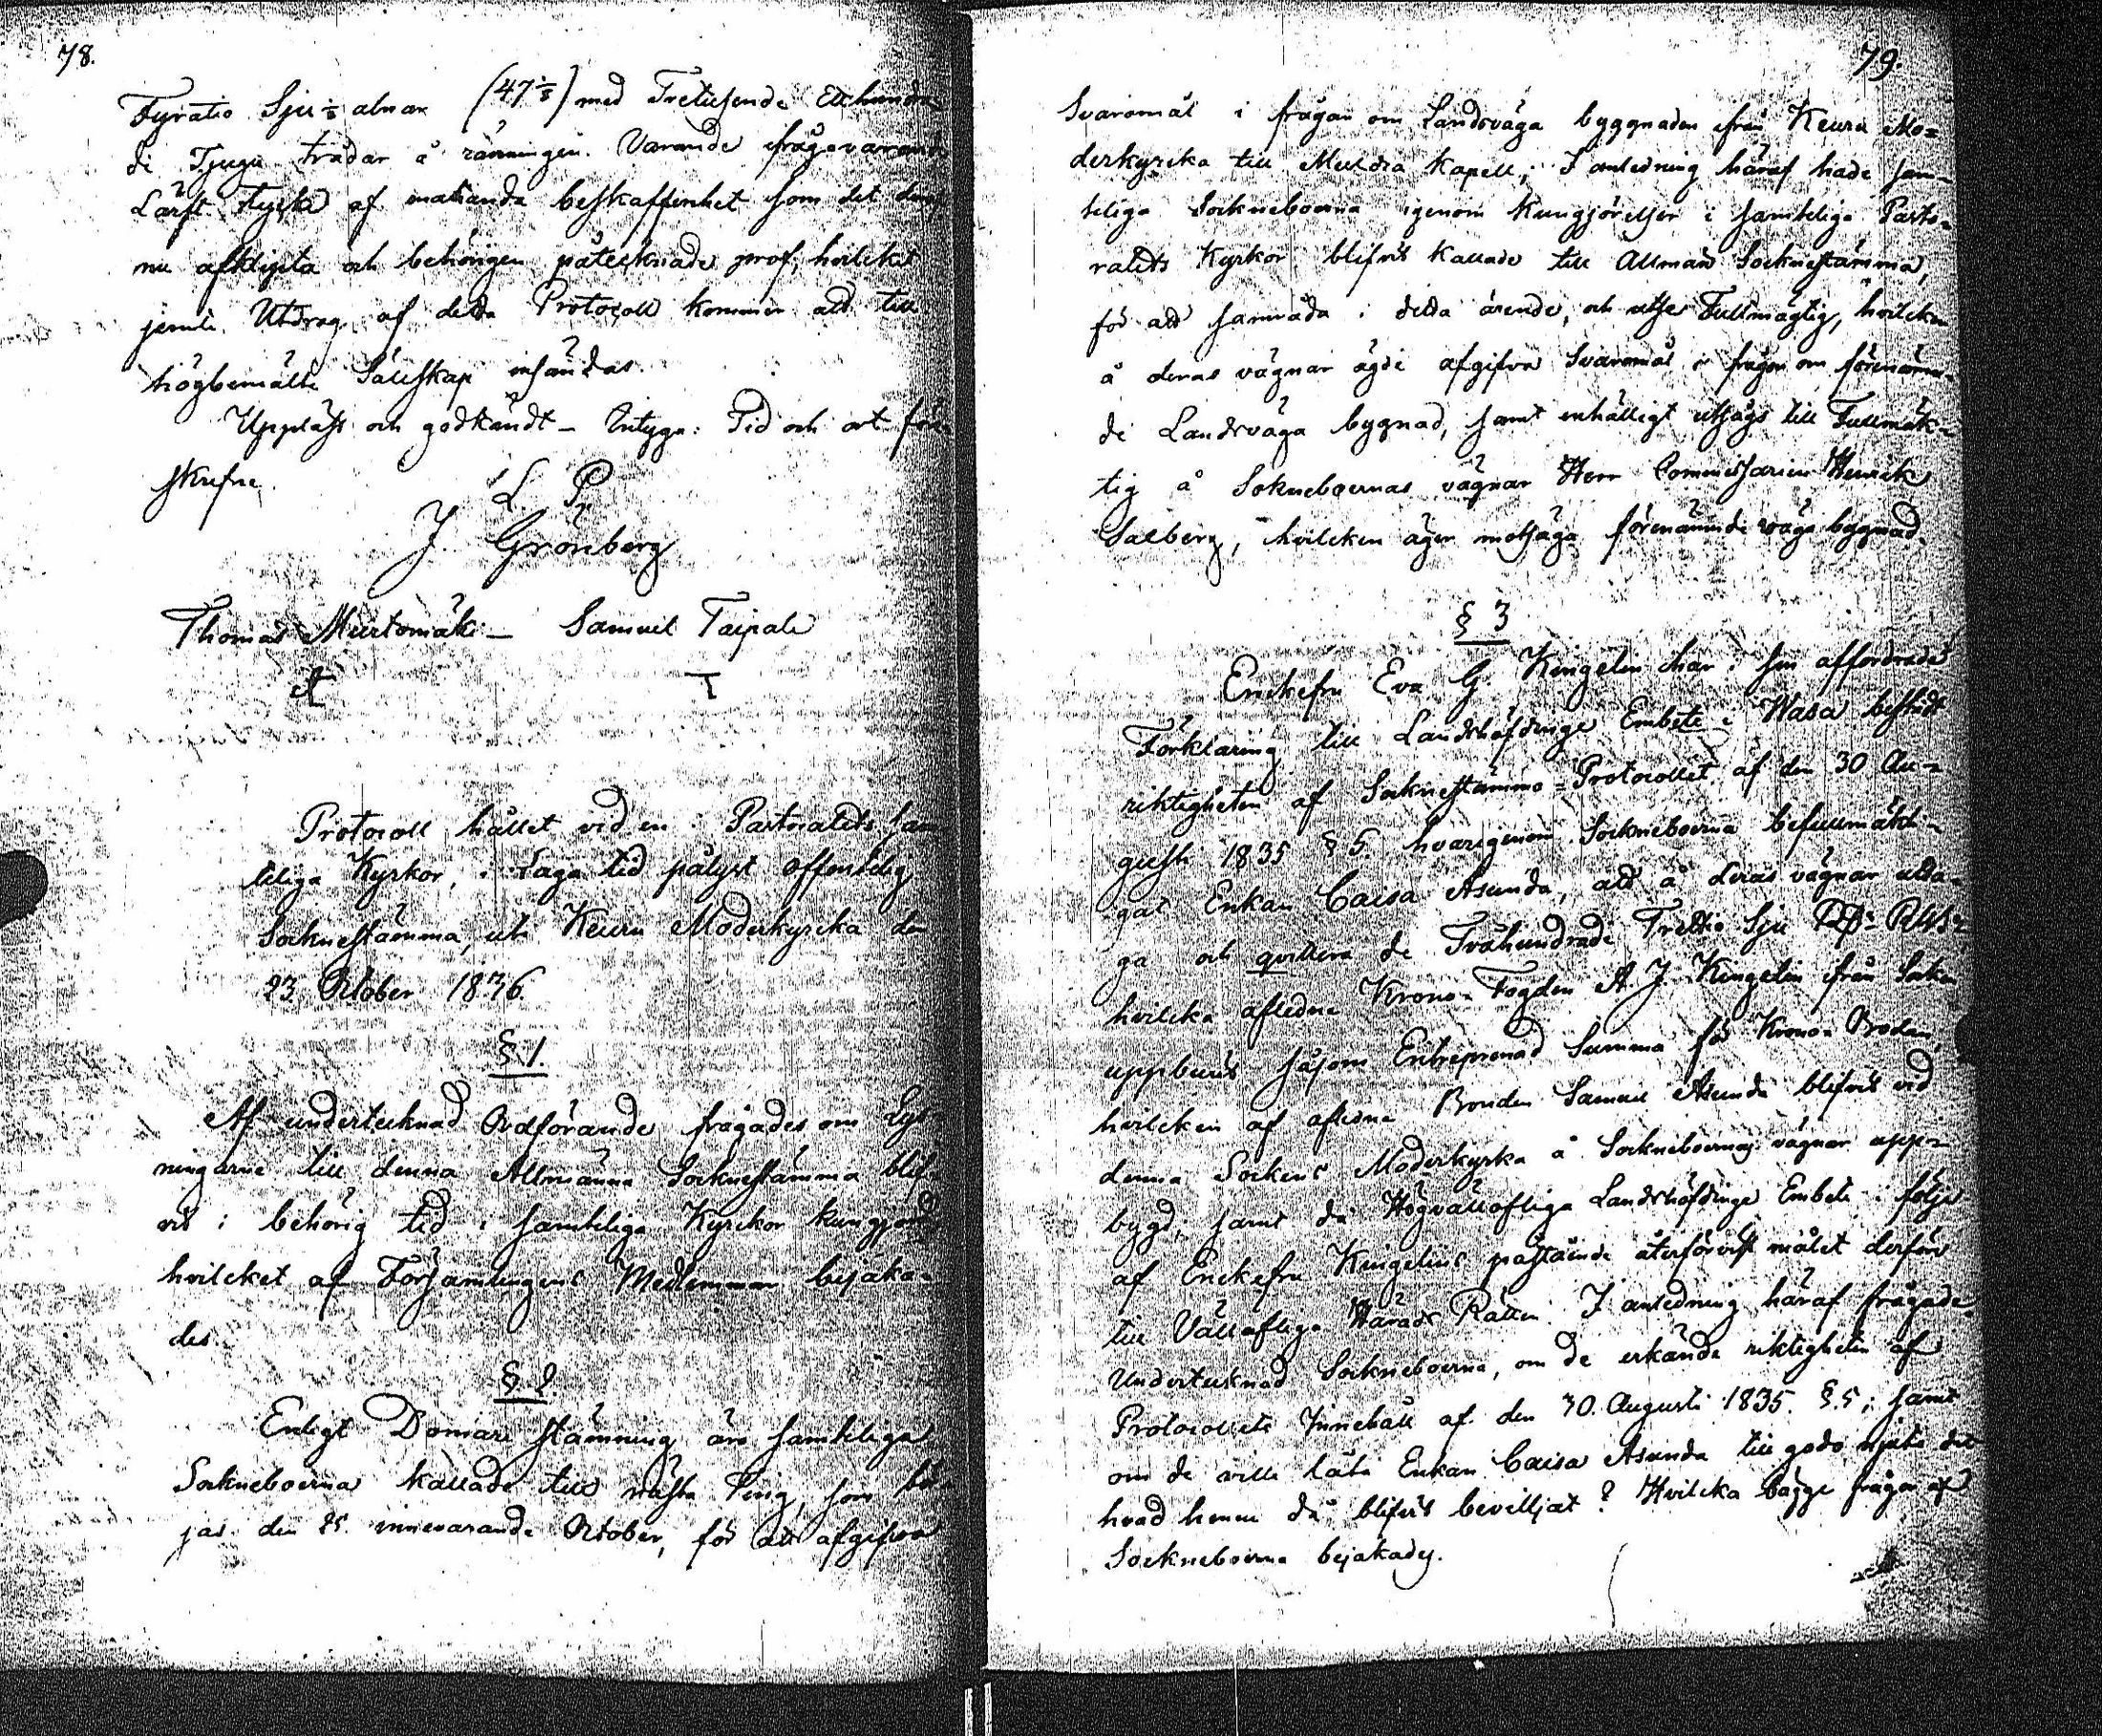 78.
Fyratio Sju ⅛ alnar (47 ⅛) med Tretusende Etthundra-
de Tjugu trådar å ränningen. Varande ifrågavarande
Lärft stycke af enahanda beskaffenhet som det
nu afklipta och behörigen påtecknade prof, hvilket
jemte Utdrag af detta Protocoll kommer att till
högbemälte Sälleskap insändas.
Uppläst och godkändt – Intyga: Tid och ort före-
skrefne.
L. P.
J. Grönberg
Thomas Murtomäki – Samuel Taipale
Protocoll hållet vid en i Pastoratets sam
teliga Kyrkor, i Laga tid pålyst offentelig
Sockne­stämma, uti Keuru Moderkyrcka den
23 October 1836.
§ 1.
Af undertecknad Ordförande frågades om Lys-
ningarne till denna Allmänna Sockne­stämma blif-
vit i behörig tid i samteliga Kyrckor kungjord,
hvilcket af Församlingens Medlemmar bejaka-
des.
§ 2.
Enligt Domare stämning äro samteliga
Sockneboerna kallade till nästa Ting, som bör-
jas den 25. innevarande October, för att afgifva
79.
Svaromål i frågan om Landsväga byggnaden ifrån Keuru Mo=
derkyrcka till Multia Kapell; I anledning häraf hade sam-
teliga Sockneboerna igenom Kungjörelser i samteliga Pasto-
ratets Kyrkor blifvit Kallade till Allmän Sockne­stämma,
för att samråda i detta ärende, och utse Fullmägtig, hvilcken
å deras vägnar ägde afgifva Svaromål i frågan om förenämn-
de Landsväga bygnad, samt enhälligt utsågs till Fullmäk-
tig å Sokneboernas vägnar Herr Commissarien Henrik
Salberg, hvilcken äger motsäga förenämnde väga bygnad.
§ 3
Enckefru Eva G. Kingelin har i sin affordrade
Förklaring till Landshöfdinge Embete i Wasa bestridt
riktigheten af Sockne­stämmo=Protocollet af den 30 Au=
gusti 1835 § 5. hvarigenom Sockneboerna befullmäkti-
gat Enkan Caisa Asunda, att å deras vägnar utta-
ga och qvittera de Tvåhundrade Trettio Sju
hvilcka afledne Krono=Fogden A. J. Kingelin ifrån
uppburit såsom Entreprenad Summa för Krono=Boden,
hvilcken af afledne Bonden Samuel Asunda blifvit vid
denna Sockens Moderkyrka å Sockneboernas vägnar upp=
bygd; samt då Högvällofliga Landshöfdinge Embete i följe
af Enckefru Kingelins påstående återförvist målet derföre
till Vällofliga Härads Rätten. I anledning häraf frågade
Undertecknad Sockneboerna, om de erkände riktigheten af
Protocollets Innehåll af den 30. Augusti 1835. §. 5; samt
om de ville låta Enkan Caisa Asunda till godo njuta det
hvad henne då blifvit bevilljat? Hvilcka bägge frågor af
Sockneboerna bejakades.